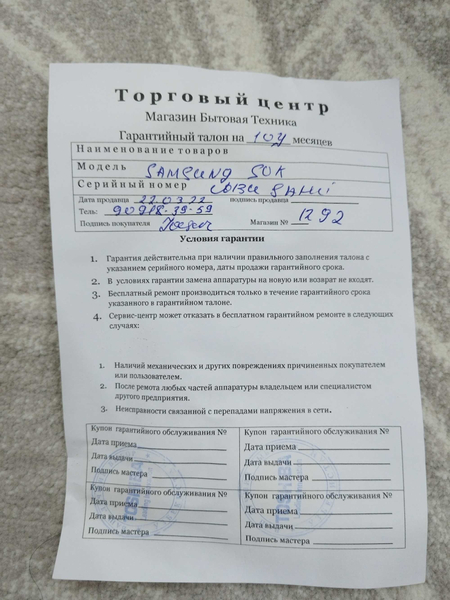 Торговый центр
Магазин Бытовая Техника
Гарантийный талон на 10 месяцев
Наименование товаров
Модель SAMSUNG 50K
Серийный номер
Дата продавца 22.03.22 подпись продавца
Тель: 90918-39-59
Подпись покупателя Магазин № 1292
Условия гарантии
1. Гарантия действительна при наличии правильного заполнения талона с
указанием серийного номера, даты продажи гарантийного срока.
2. В условиях гарантии замена аппаратуры на новую или возврат не входят.
3. Бесплатный ремонт производиться только в течение гарантийного срока
указанного в гарантийном талоне.
4. Сервис-центр может отказать в бесплатном гарантийном ремонте в следующих
случаях:
1. Наличий механических и других повреждениях причиненных покупателем
или пользователем.
2. После ремота любых частей аппаратуры владельцем или специалистом
другого предприятия.
3. Неисправности связанной с перепадами напряжения в сети.
Купон гарантийного обслуживания № Купон гарантийного обслуживания №
Дата приема Дата приема
Дата выдачи Дата выдачи
Подпись мастера Подпись мастера
Купон гарантийного обслуживания № Купон гарантийного обслуживания №
Дата приема Дата приема
Дата выдачи Дата выдачи
Подпись мастера Подпись мастера